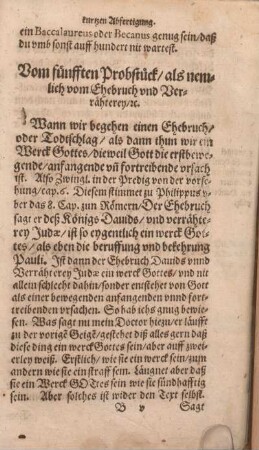 kurtzen Abfertigung.
ein Baccalaureus oder Becanus genug sein / daß
du vmb sonst auff hundert nit wartest.
Vom fünfften Probstück / als nem-
lich vom Ehebruch vnd Ver-
rähterey / ꝛc.
Wann wir begehen einen Ehebruch /
oder Todtschlag / als dann thun wir ein
Werck Gottes / dieweil Gott die erstbewe-
gende / anfangende vñ fortreibende vrsach
ist. Also Zwingl. in der Predig von der vorse-
hung / cap. 6. Diesem stimmet zu Philippus v-
ber das 8. Cap. zum Römern / Der Ehebruch
sagt er deß Königs Dauids / vnd verrähte-
rey Judæ / ist so eygentlich ein werck Got-
tes / als eben die beruffung vnd bekehrung
Pauli. Ist dann der Ehebruch Dauids vnnd
Verrähterey Judæ ein werck Gottes / vnd nit
allein schlecht dahin / sonder entstehet von Gott
als einer bewegenden anfangenden vnnd fort-
treibenden vrsachen. So hab ichs gnug bewie-
sen. Was sagt nu mein Doctor hiezu / er läufft
zu der vorigē Geigē / gestehet diß alles gern daß
diese ding ein werck Gottes sein / aber auff zwei-
erley weiß. Erstlich / wie sie ein werck sein / zum
andern wie sie ein straff sein. Läugnet aber daß
sie ein Werck GOttes sein wie sie sündhafftig
sein. Aber solches ist wider den Text selbst.
B v Sagt